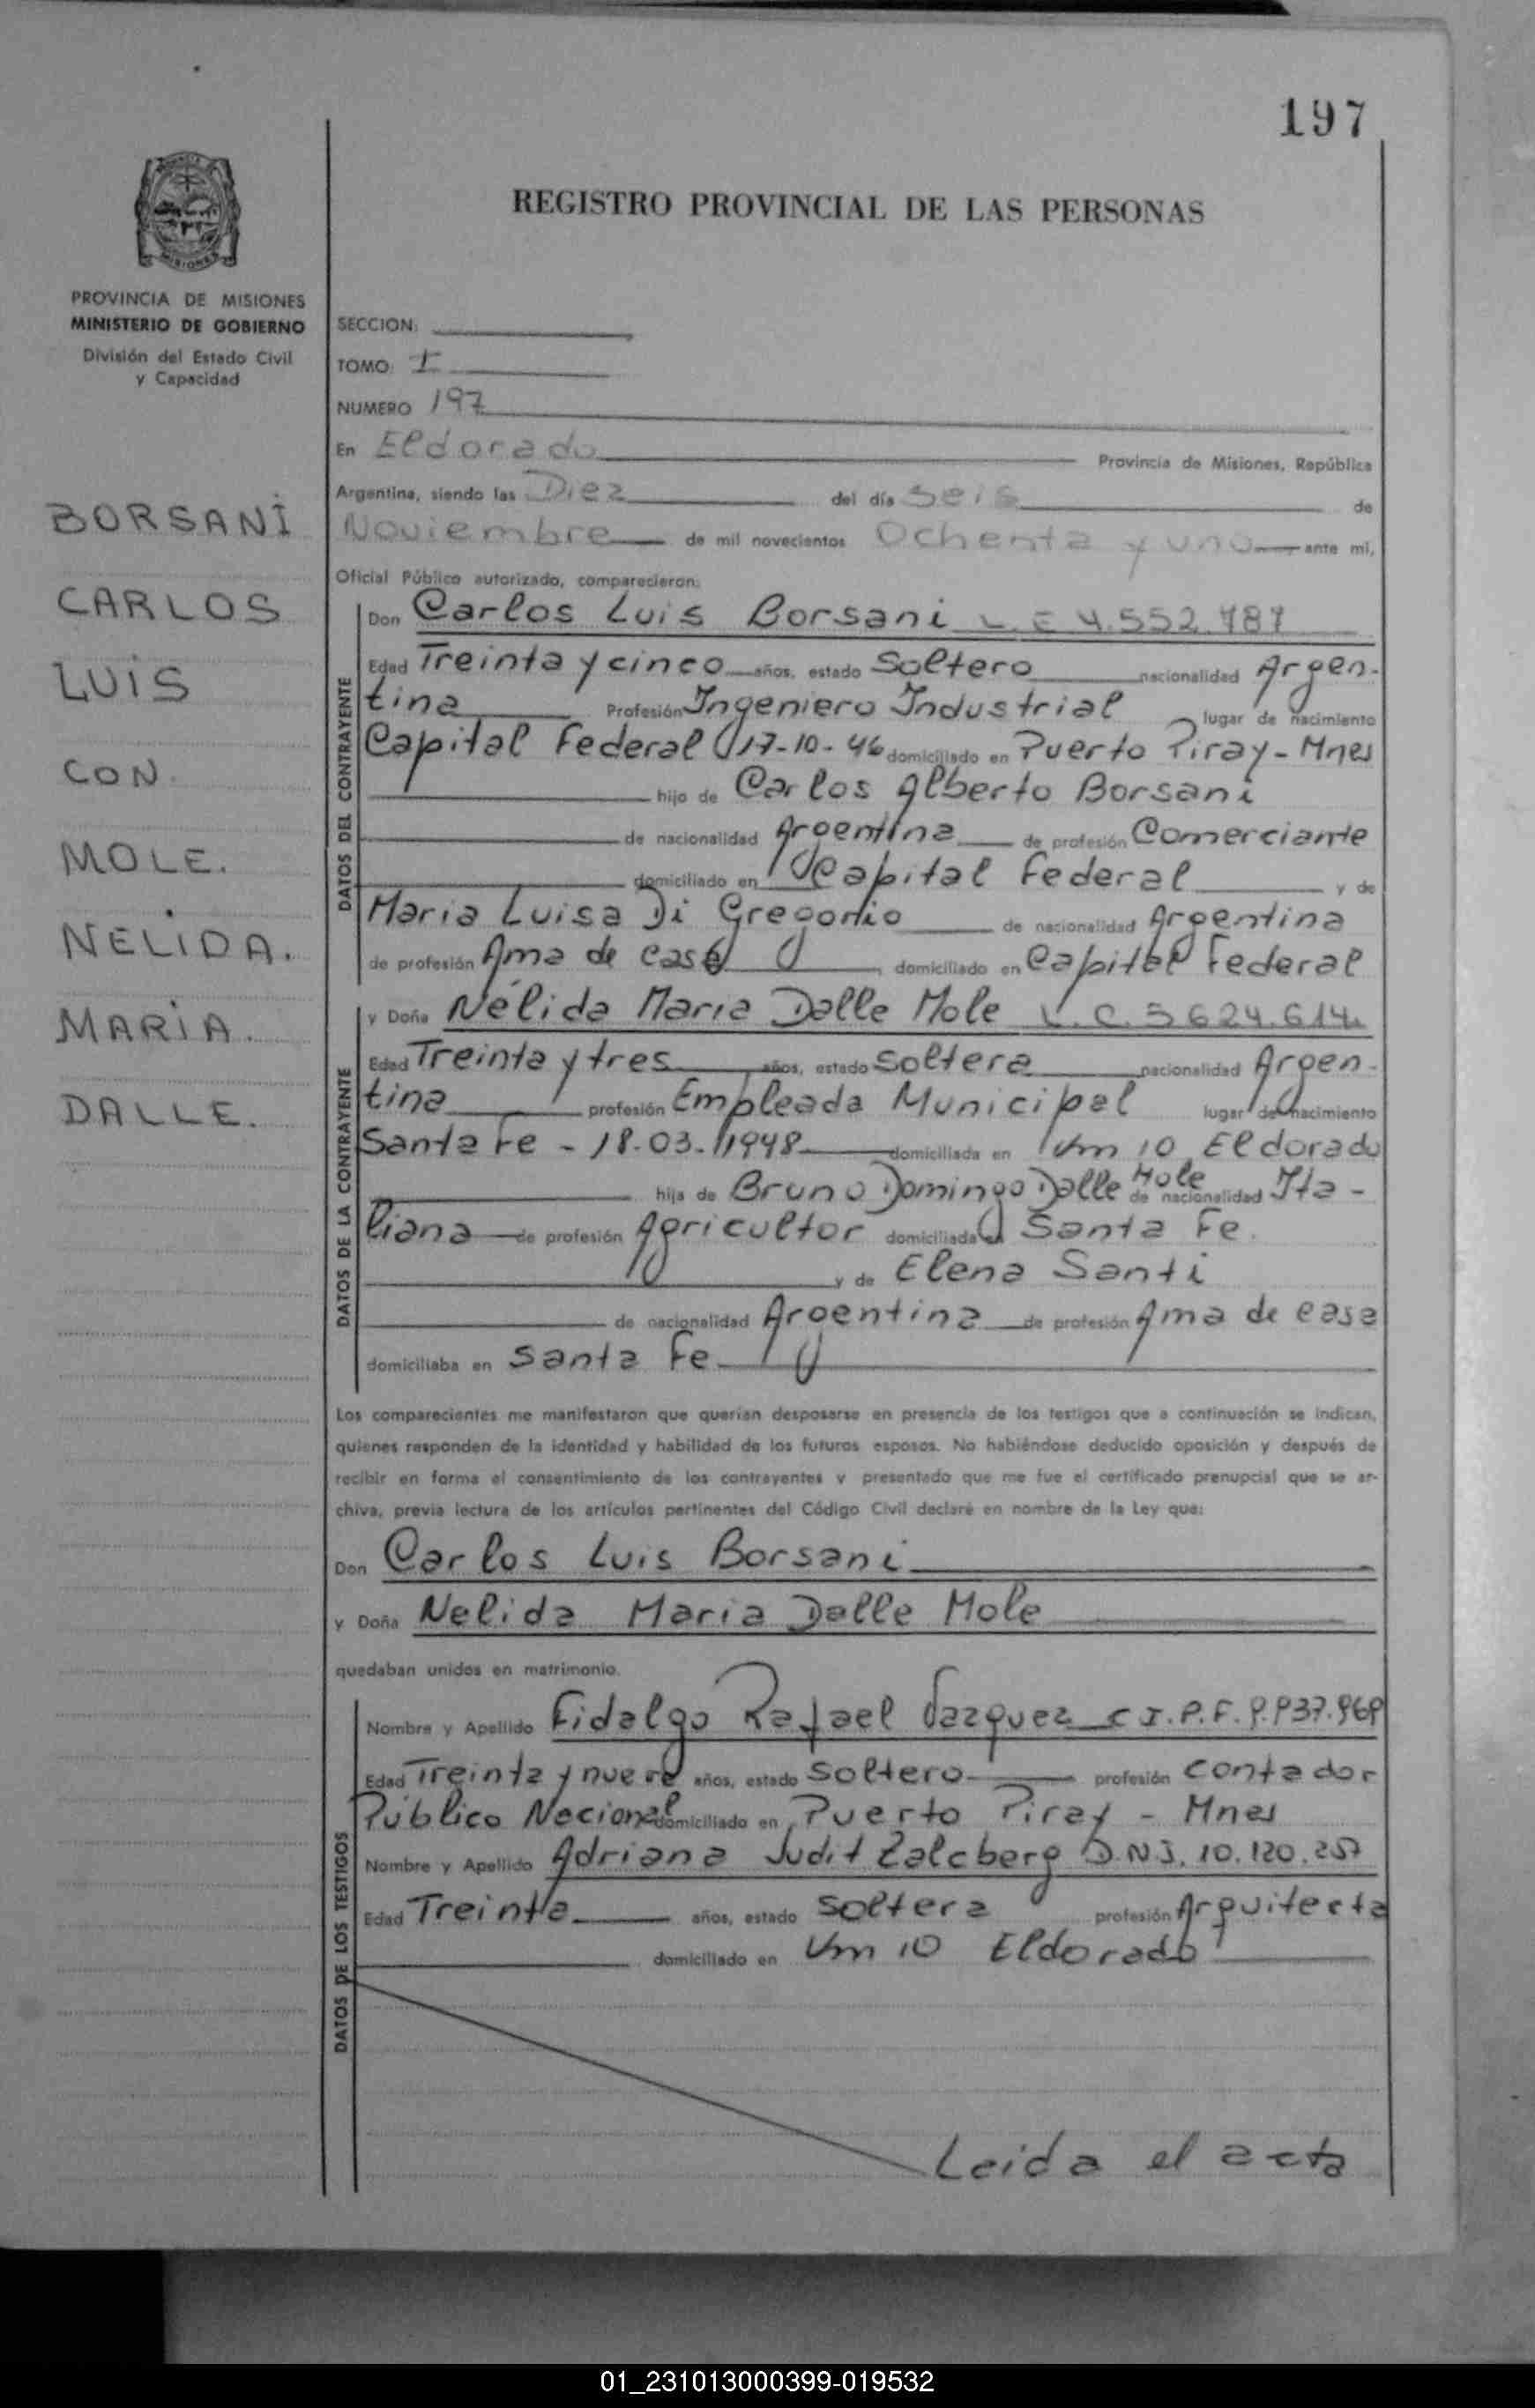 197
REGISTRO PROVINCIAL DE LAS PERSONAS
MISIONES
PROVINCIA DE MISIONES
MINISTERIO DE GOBIERNO
División del Estado Civil
y Capacidad
BORSANI
CARLOS
LUIS
CON.
MOLE.
NELIDA.
MARIA.
DALLE.
SECCION:
TOMO: I
NUMERO 197
En Eldorado Provincia de Misiones, República
Argentina, siendo las Diez del día Seis de
Noviembre de mil novecientos Ochenta y uno ante mi,
Oficial Público autorizado, comparecieron:
DATOS DEL CONTRAYENTE
Don Carlos Luis Borsani L.E 4.552.787
Edad Treinta y cinco años, estado Soltero nacionalidad Argen-
tina Profesión Ingeniero Industrial lugar de nacimiento
Capital Federal 17-10-46 domiciliado en Puerto Piray - Mnes
hijo de Carlos Alberto Borsani
de nacionalidad Argentina de profesión Comerciante
domiciliado en Capital Federal y de
Maria Luisa Di Gregorio de nacionalidad Argentina
de profesión Ama de casa domiciliado en Capital Federal
DATOS DE LA CONTRAYENTE
y Doña Nélida Maria Dalle Mole L.C. 5 624.614
Edad Treinta y tres años, estado Soltera nacionalidad Argen-
tina profesión Empleada Municipal lugar de nacimiento
Santa Fe - 18-03-1948 domiciliada en Km 10 Eldorado
hija de Bruno Domingo Dalle Mole de nacionalidad Ita-
liana de profesión Agricultor domiciliada en Santa Fe.
y de Elena Santi
de nacionalidad Argentina de profesión Ama de casa
domiciliaba en Santa Fe
Los comparecientes me manifestaron que querían desposarse en presencia de los testigos que a continuación se indican,
quienes responden de la identidad y habilidad de los futuros esposos. No habiéndose deducido oposición y después de
recibir en forma el consentimiento de los contrayentes y presentado que me fue el certificado prenupcial que se ar-
chiva, previa lectura de los artículos pertinentes del Código Civil declaré en nombre de la Ley que:
Don Carlos Luis Borsani
y Doña Nelida Maria Dalle Mole
quedaban unidos en matrimonio.
DATOS DE LOS TESTIGOS
Nombre y Apellido Fidalgo Rafael Vazquez C I.P.F.
Edad Treinta y nueve años, estado Soltero profesión Contador
Público Nacional domiciliado en Puerto Piray - Mnes
Nombre y Apellido Adriana Judit Zalcberg D.N.I. 10.120.257
Edad Treinta años, estado Soltera profesión Arquitecta
domiciliado en Km 10 Eldorado
Leida el acta
01_231013000399-019532